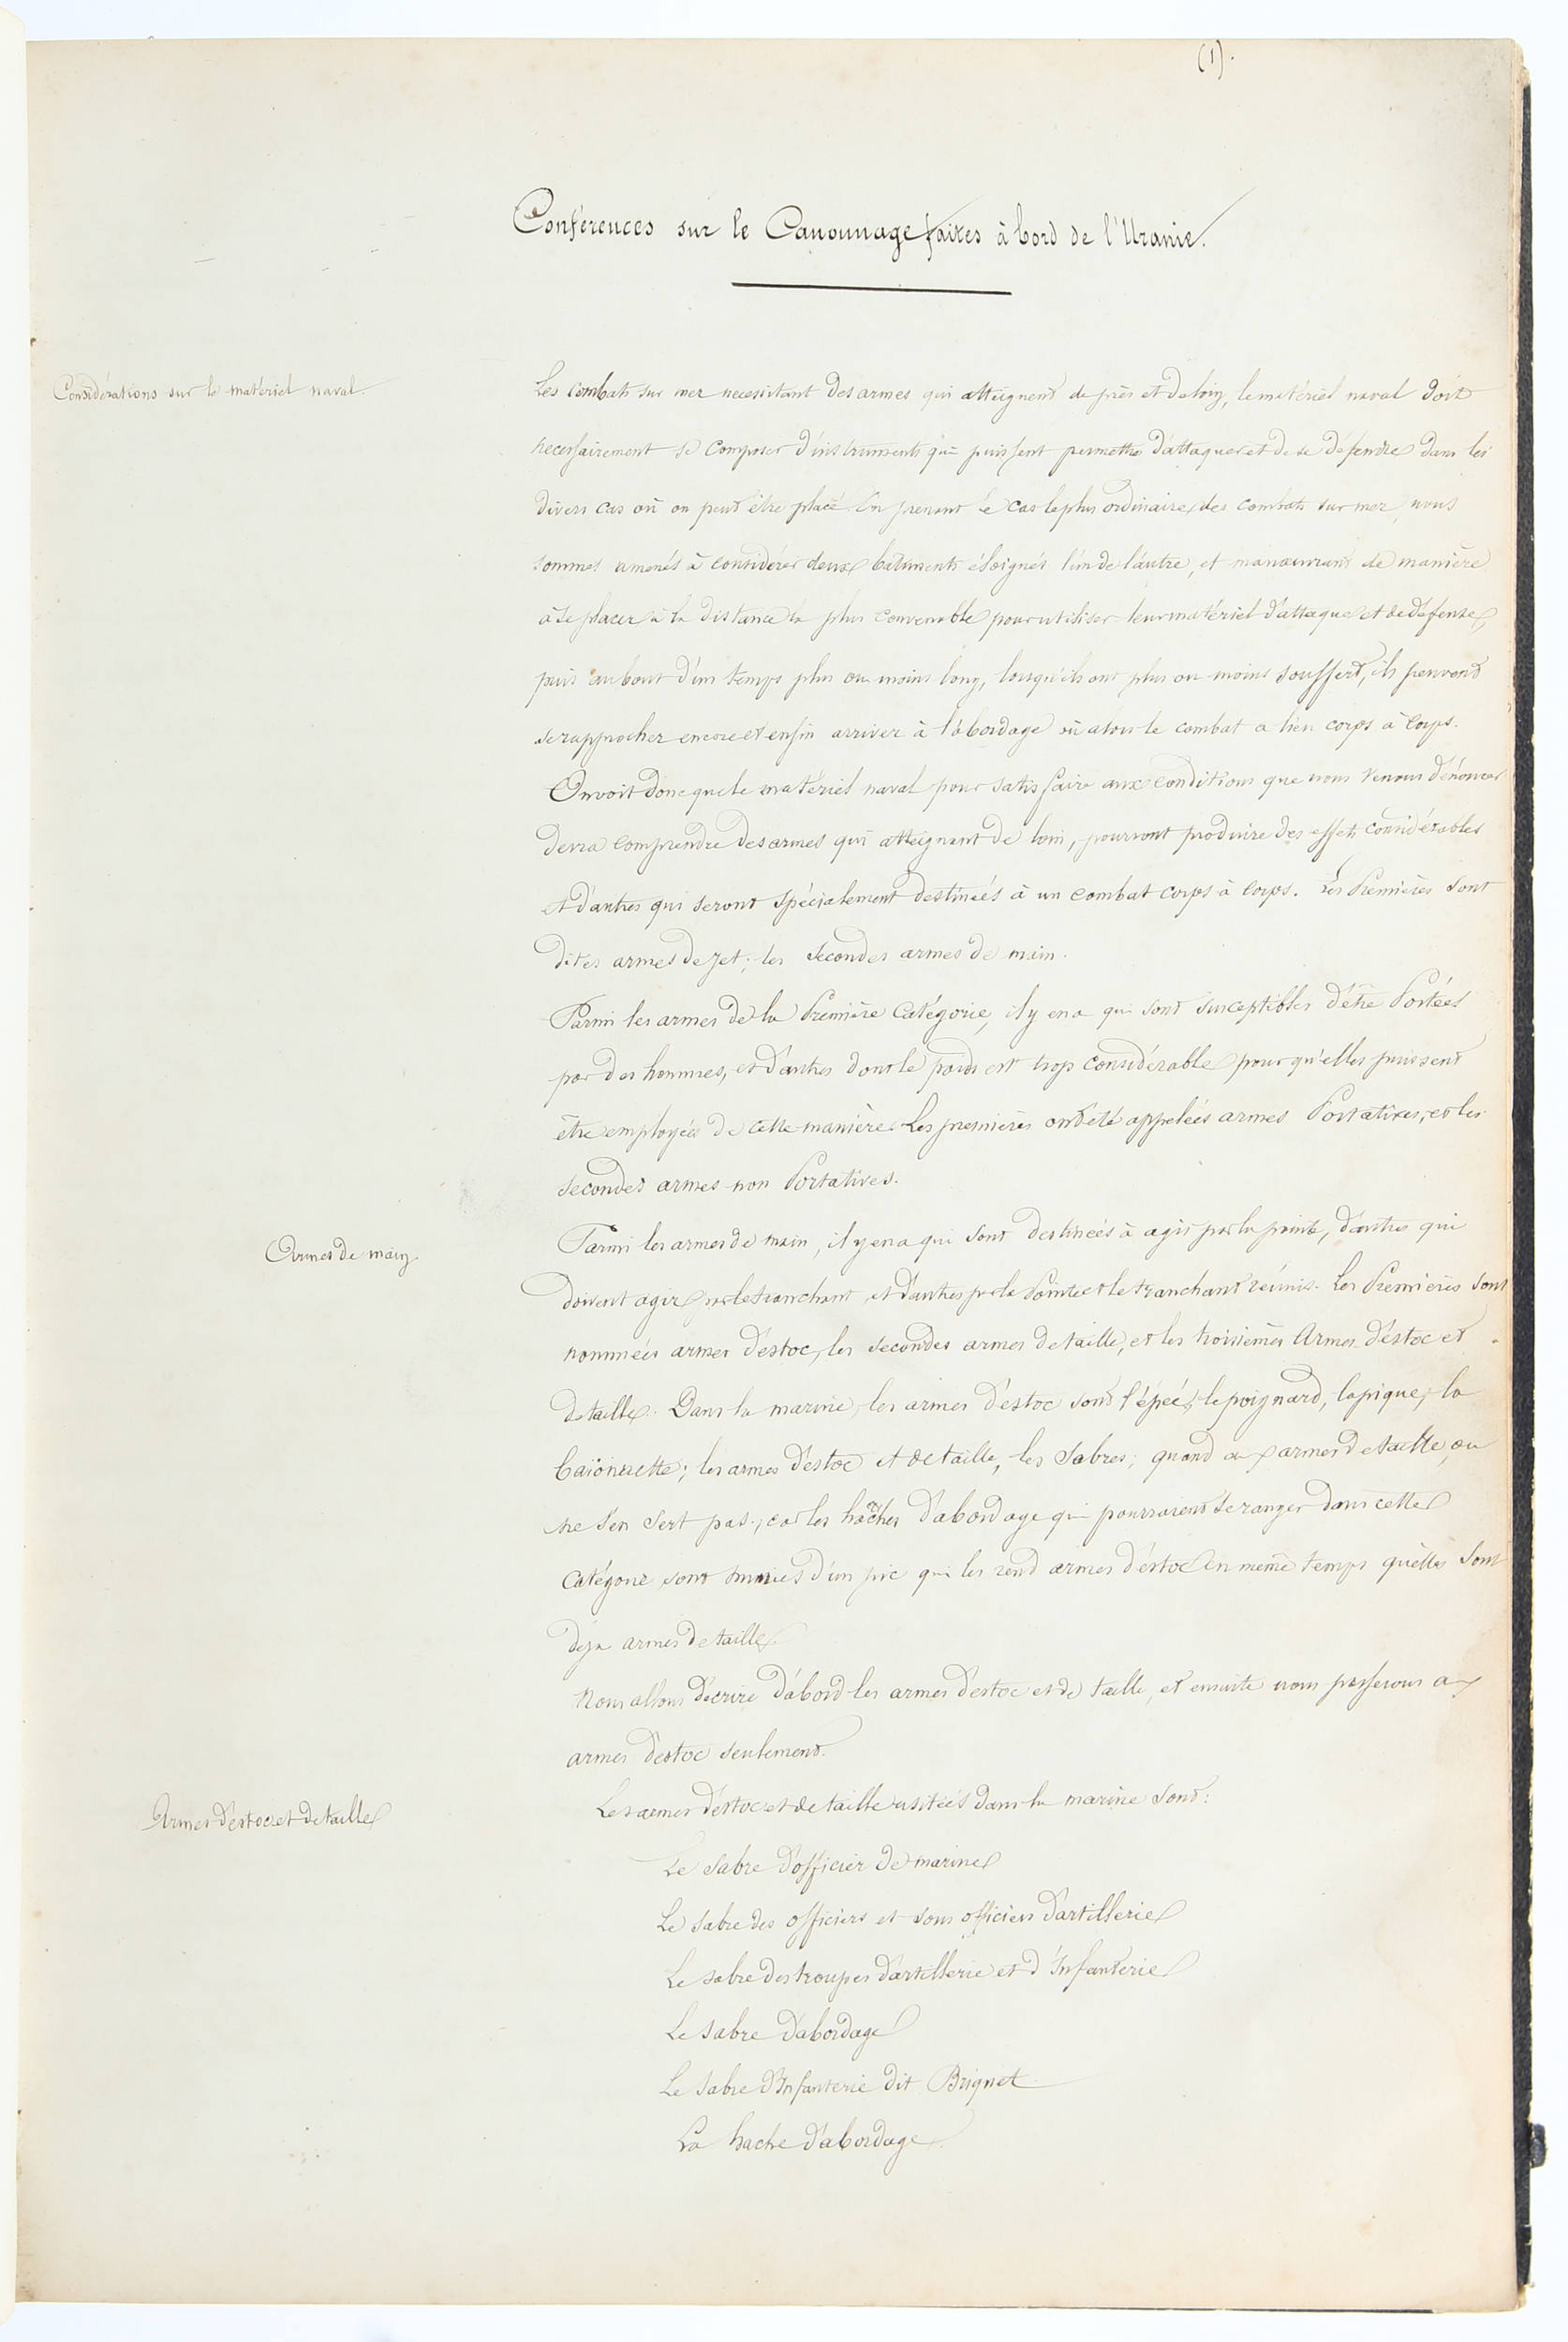 (1).
Conférences sur le Canonnage faites à bord de l'Uranie.
Considérations sur le matériel naval.
Les combats sur mer necessitant des armes qui atteignent de près et de loin, le matériel naval doit
necessairement se composer d'instruments qui puissent permettre d'attaquer et de se défendre dans les
divers cas où on peut être placé. En prenant le cas le plus ordinaire des combats sur mer, nous
sommes amenés à considérer deux bâtiments éloignés l'un de l'autre, et manœuvrant de manière
à se placer à la distance la plus convenable pour utiliser leur matériel d'attaque et de défense,
puis au bout d'un temps plus ou moins long, lorsqu'ils ont plus ou moins souffert, ils peuvent
se rapprocher encore et enfin arriver à l'abordage où alors le combat a lieu corps à corps.
On voit donc que le matériel naval pour satisfaire aux conditions que nous venons d'énoncer
devra comprendre des armes qui atteignant de loin, pourront produire des effets considérables
et d'autres qui seront spécialement destinées à un combat corps à corps. Les Premières sont
dites armes de jet; les secondes armes de main.
Parmi les armes de la Première Catégorie, il y en a qui sont susceptibles d'être Portées
par des hommes, et d'autres dont le poids est trop considérable pour qu'elles puissent
être employées de cette manière. Les premières ont été appelées armes Portatives, et les
secondes armes non Portatives.
Armes de main
Parmi les armes de main, il y en a qui sont destinées à agir par la pointe, d'autres qui
doivent agir par le tranchant et d'autres par la Pointe et le tranchant réunis. Les Premières sont
nommées armes d'estoc, les secondes armes de taille, et les troisièmes Armes d'estoc et
de taille. Dans la marine, les armes d'estoc sont l'épée, le poignard, la pique, la
baïonnette; les armes d'estoc et de taille, les Sabres; quand aux armes de taille, on
ne s'en sert pas; car les haches d'abordage qui pourraient se ranger dans cette
Catégorie sont munies d'un pic qui les rend armes d'estoc en même temps qu'elles sont
déja armes de taille.
Nous allons décrire d'abord les armes d'estoc et de taille, et ensuite nous passerons aux
armes d'estoc seulement.
Armes d'estoc et de taille
Les armes d'estoc et de taille usitées dans la marine sont:
Le sabre d'officier de marine
Le sabre des officiers et sous officiers d'artillerie
Le sabre des troupes d'artillerie et d'Infanterie
Le sabre d'abordage
Le sabre d'Infanterie dit Briquet
La hache d'abordage